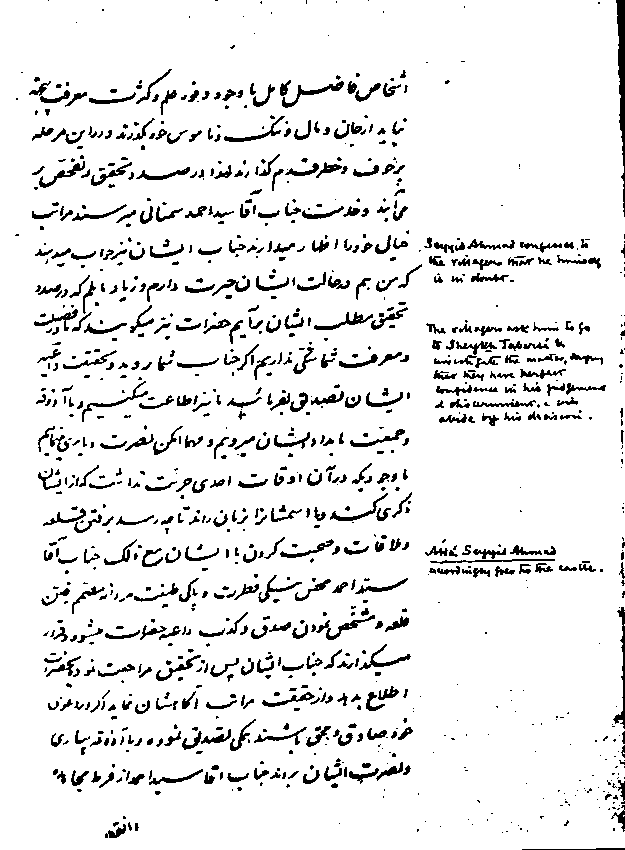 اشخاص فاضل كامل با وجود وفور علم و كثرت معرفت
نبايد از جان و مال و ننك و ناموس خود بكذرند و در اين مرحله
پر خوف و خطر قدم كذارند لهذا در صدد تحقيق و تفحص بر
مى‌آيند و خدمت جناب آقا سيد احمد سمنانى ميرسند مراتب
خيال خود را اظهار ميدارند جناب ايشان نيز جواب ميدهند
كه من هم در حالت ايشان حيرت دارم و زياد مايلم كه در صدد
تحقيق مطلب ايشان برآيم حضرات نيز ميكويند كه ما در فضيلت
و معرفت شما شكى نداريم اكر جناب شما رويد و بحقيقت داعيه
ايشان تصديق بفرمائيد ما نيز اطاعت ميكنيم و با آذوقه
و جمعيت بامداد ايشان ميرويم و مهما امكن نصرت و يارى مينمايم
با وجوديكه در آن اوقات احدى جرئت نداشت كه از ايشان
ذكرى كند و يا اسمشان را بزبان راند تا چه رسد برفتن قلعه
و ملاقات و صحبت كردن با ايشان مع ذالك جناب آقا
سيد احمد محض نيكى فطرت و پاكى طينت مردانه مصمم رفتن
قلعه و مشخص نمودن صدق و كذب داعيه حضرات ميشود و قرار
ميكذارند كه جناب ايشان پس از تحقيق مراجعت نموده بحضرات
اطلاع بدهد و از حقيقت مراتب آكاهشان نمايد اكر در دعوى
خود صادق و محق باشند همكى تصديق نموده و با آذوقه بيارى
و نصرت ايشان بروند جناب آقا سيد احمد از فرط
Seyyid Ahmad confesses to
the villagers that he himself
is in doubt.
The villagers ask him to go
to Sheykh Tabarsi &
investigate the matter, saying
that they have perfect
confidence in his judgement
& discernment, & will
abide by his decision.
Aká Seyyid Ahmad
accordingly goes to the castle.